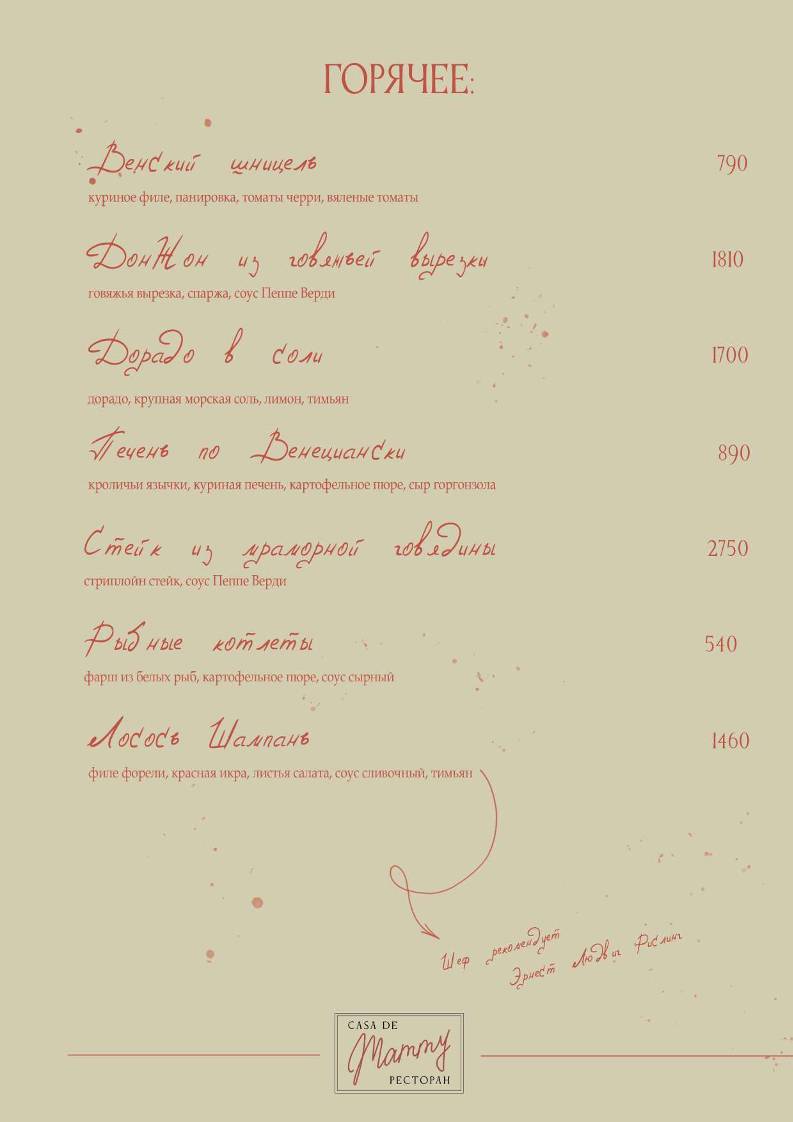 ГОРЯЧЕЕ:
Венский шницель 790
куриное филе, панировка, томаты черри, вяленые томаты
ДонЖон из говяжьей вырезки 1810
говяжья вырезка, спаржа, соус Пеппе Верди
Дорадо в соли 1700
дорадо, крупная морская соль, лимон, тимьян
Печень по Венециански 890
кроличьи язычки, куриная печень, картофельное пюре, сыр горгонзола
Стейк из мраморной говядины 2750
стриплойн стейк, соус Пеппе Верди
Рыбные котлеты 540
фарш из белых рыб, картофельное пюре, соус сырный
Лосось Шампань 1460
филе форели, красная икра, листья салата, соус сливочный, тимьян
Шеф рекомендует
Эрнест Людвиг Рислинг
CASA DE
Mammy
РЕСТОРАН